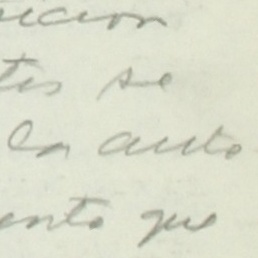 icion
tes se
la auto
ento que